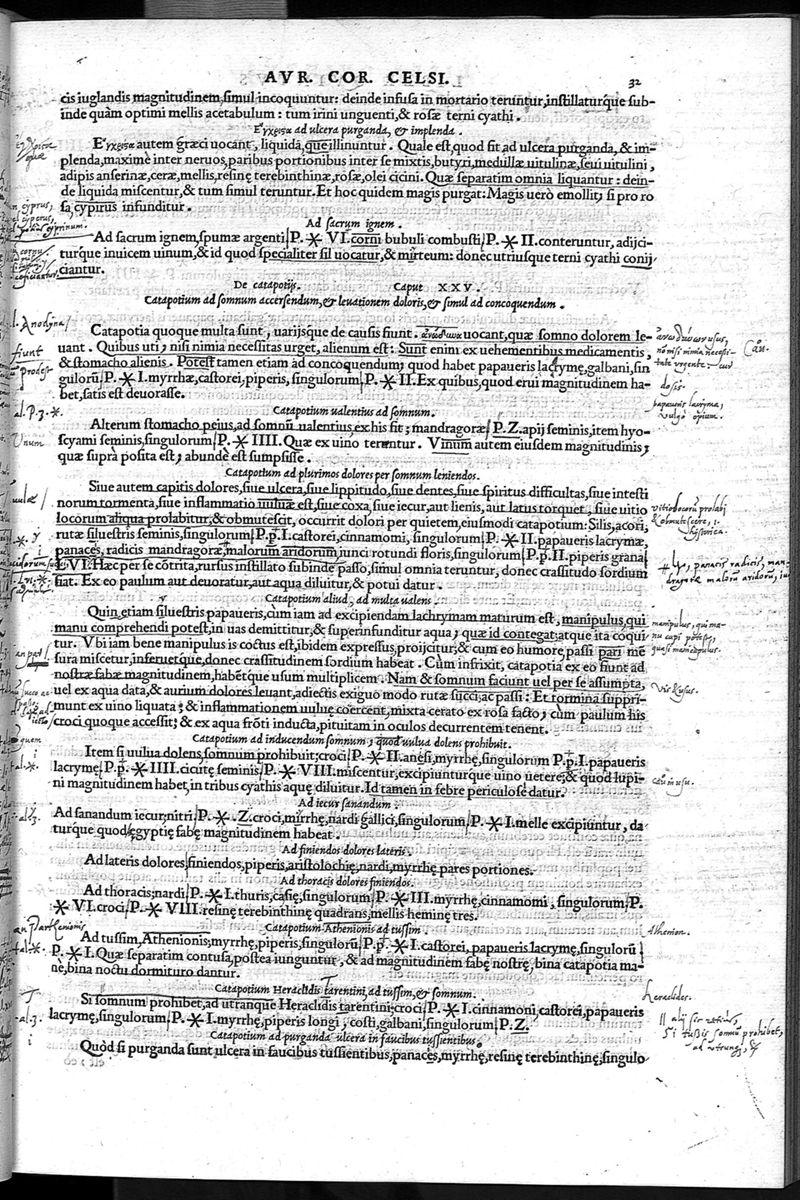 AVR. COR. CELSI.
32
cis iuglandis magnitudinem, simul incoquuntur: deinde infusa in mortario teruntur, instillaturque sub-
inde quàm optimi mellis acetabulum: tum irini unguenti, & rosæ terni cyathi.
Εὔχρισα ad ulcera purganda, & implenda.
Εὔχρισα autem græci uocant, liquida, que illinuntur. Quale est, quod fit ad ulcera purganda, & im-
plenda, maximè inter neruos, paribus portionibus inter se mixtis, butyri, medullæ uitulinæ, seui uitulini,
adipis anserinæ, ceræ, mellis, resinę terebinthinæ, rosæ, olei cicini. Quæ separatim omnia liquantur: dein-
de liquida miscentur, & tum simul teruntur. Et hoc quidem magis purgat: Magis uerò emollit, si pro ro
sa, cypirus infunditur.
Ad sacrum ignem.
Ad sacrum ignem, spumæ argenti P. * VI. corni bubuli combusti P. * II. conteruntur, adijci-
turque inuicem uinum, & id quod specialiter sil uocatur, & mirteum: donec utriusque terni cyathi conij
ciantur.
De catapotijs. Caput XXV.
Catapotium ad somnum accersendum, & leuationem doloris, & simul ad concoquendum.
Catapotia quoque multa sunt, uarijsque de causis fiunt. ἀνώδυνα uocant, quæ somno dolorem le-
uant. Quibus uti, nisi nimia necessitas urget, alienum est: Sunt enim ex uehementibus medicamentis,
& stomacho alienis. Potest tamen etiam ad concoquendum, quod habet papaueris lacrymę, galbani, sin
gulorũ P. * I. myrrhæ, castorei, piperis, singulorum P. * II. Ex quibus, quod erui magnitudinem ha-
bet, satis est deuorasse.
Catapotium ualentius ad somnum.
Alterum stomacho peius, ad somnũ ualentius, ex his fit; mandragoræ P. Z. apij seminis, item hyo-
scyami seminis, singulorum P. * IIII. Quæ ex uino teruntur. Vinum autem eiusdem magnitudinis,
quæ suprà posita est, abunde est sumpsisse.
Catapotium ad plurimos dolores per somnum leniendos.
Siue autem capitis dolores, siue ulcera, siue lippitudo, siue dentes, siue spiritus difficultas, siue intesti
norum tormenta, siue inflammatio uuluæ est, siue coxa, siue iecur, aut lienis, aut latus torquet, siue uitio
locorum aliqua prolabitur, & obmutescit, occurrit dolori per quietem, eiusmodi catapotium: Silis, acori,
rutæ siluestris seminis, singulorum P. p. I. castorei, cinnamomi, singulorum P. * II. papaueris lacrymæ,
panaces, radicis mandragoræ, malorum aridorum, iunci rotundi floris, singulorum P. p. II. piperis grana
L VI. Hæc per se cõtrita, rursus instillato subinde passo, simul omnia teruntur, donec crassitudo sordium
fiat. Ex eo paulum aut deuoratur, aut aqua diluitur, & potui datur.
Catapotium aliud, ad multa ualens.
Quin etiam siluestris papaueris, cùm iam ad excipiendam lachrymam maturum est, manipulus, qui
manu comprehendi potest, in uas demittitur, & superinfunditur aqua, quæ id contegat, atque ita coqui
tur. Vbi iam bene manipulus is coctus est, ibidem expressus, proijcitur; & cum eo humore, passi pari mē
sura miscetur, inferuetque, donec crassitudinem sordium habeat. Cùm infrixit, catapotia ex eo fiunt ad
nostræ fabæ magnitudinem, habētque usum multiplicem. Nam & somnum faciunt uel per se assumpta,
uel ex aqua data, & aurium dolores leuant, adiectis exiguo modo rutæ succi, ac passi: Et tormina suppri-
munt ex uino liquata; & inflammationem uuluę coercent, mixta cerato ex rosa facto, cùm paulum his
croci quoque accessit; & ex aqua frõti inducta, pituitam in oculos decurrentem tenent.
Catapotium ad inducendum somnum, quod uulua dolens prohibuit.
Item si uulua dolens, somnum prohibuit; croci P. * II. anesi, myrrhę, singulorum P. p. I. papaueris
lacrymę P. p. * IIII. cicutę seminis P. * VIII. miscentur, excipiunturque uino uetere; & quod lupi-
ni magnitudinem habet, in tribus cyathis aquę diluitur. Id tamen in febre periculose datur.
Ad iecur sanandum.
Ad sanandum iecur; nitri P. * .Z. croci, mirrhę, nardi gallici, singulorum P. * I. melle excipiuntur, da
turque quod ęgyptię fabę magnitudinem habeat.
Ad finiendos dolores lateris.
Ad lateris dolores finiendos, piperis, aristolochię, nardi, myrrhę pares portiones.
Ad thoracis dolores finiendos.
Ad thoracis; nardi P. * I. thuris, casię, singulorum P. * III. myrrhę, cinnamomi, singulorum P.
* VI. croci P. * VIII. resinę terebinthinę quadrans, mellis heminę tres.
Catapotium Athenionis ad tussim.
Ad tussim, Athenionis; myrrhę, piperis, singulorũ P. p. * I. castorei, papaueris lacrymę, singulorũ
P. * I. Quæ separatim contusa, postea iunguntur, & ad magnitudinem fabę nostrę, bina catapotia ma-
ne, bina noctu dormituro dantur.
Catapotium Heraclidis Tarentini, ad tussim, & somnum.
Si somnum prohibet, ad utranque Heraclidis tarentini; croci P. * I. cinnamoni, castorei, papaueris
lacrymę, singulorum P. * I. myrrhę, piperis longi, costi, galbani, singulorum P. Z.
Catapotium ad purganda ulcera in faucibus tussientibus.
Quòd si purganda sunt ulcera in faucibus tussientibus, panaces, myrrhę, resinę terebinthinę, singulo
l. Anodyna
fiunt
al. P. 3. *.
Unum
dosis.
papaueris lacryma,
uulgo opium.
Athenion.
Heraclides.
Si tussis somnũ prohibet,